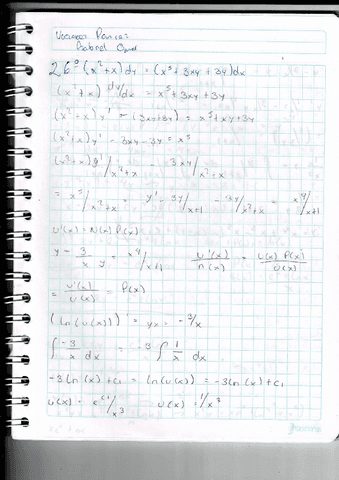 26° (x²+x)dy = (x⁵+3xy+3y)dx
(x²+x) dy/dx = x⁵+3xy+3y
(x²+x) y' - (3xy+3y) = x⁵+xy+3y
(x²+x)y' - 3xy-3y = x⁵
(x²+x)y'/x²+x - 3xy/x²+x
= x⁵/x²+x = y' - 3y/x+1 - /x²+x = x⁴/x+1
u'(x) = N(x) P(x)
y - 3/x y = x⁴/x+1 u'(x)/n(x) = u(x) P(x)/u(x)
= u'(x)/u(x) = P(x)
(ln(u(x)))' = yx = -3/x
∫ -3/x dx = -3 ∫ 1/x dx
-3ln(x)+c₁ = ln(u(x)) = -3ln(x)+c₁
u(x) = e^c1/x³ u(x) = 1/x³